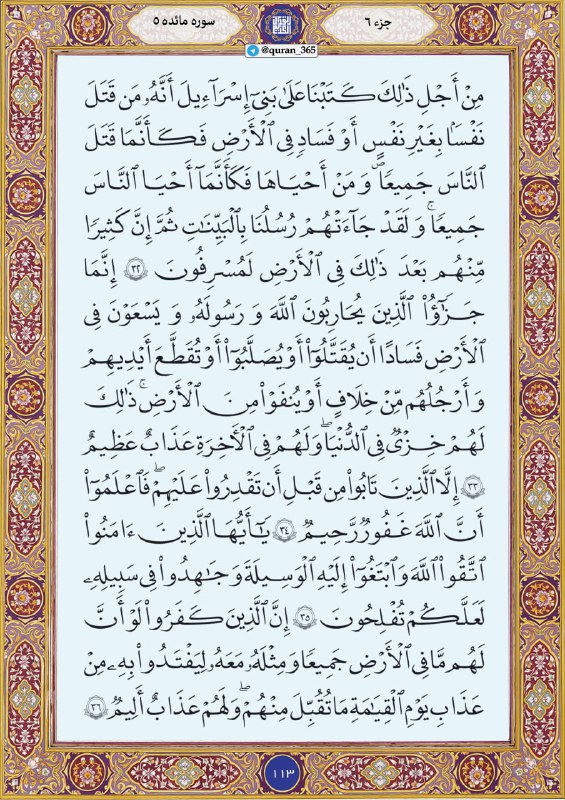 جزء ۶
سوره مائده ۵
@quran_365
مِنْ أَجْلِ ذَٰلِكَ كَتَبْنَا عَلَىٰ بَنِىٓ إِسْرَآءِيلَ أَنَّهُۥ مَن قَتَلَ
نَفْسًۢا بِغَيْرِ نَفْسٍ أَوْ فَسَادٍ فِى ٱلْأَرْضِ فَكَأَنَّمَا قَتَلَ
ٱلنَّاسَ جَمِيعًا وَ مَنْ أَحْيَاهَا فَكَأَنَّمَآ أَحْيَا ٱلنَّاسَ
جَمِيعًا ۚ وَ لَقَدْ جَآءَتْهُمْ رُسُلُنَا بِٱلْبَيِّنَٰتِ ثُمَّ إِنَّ كَثِيرًا
مِّنْهُم بَعْدَ ذَٰلِكَ فِى ٱلْأَرْضِ لَمُسْرِفُونَ ۳۲ إِنَّمَا
جَزَٰٓؤُا۟ ٱلَّذِينَ يُحَارِبُونَ ٱللَّهَ وَ رَسُولَهُۥ وَ يَسْعَوْنَ فِى
ٱلْأَرْضِ فَسَادًا أَن يُقَتَّلُوٓا۟ أَوْ يُصَلَّبُوٓا۟ أَوْ تُقَطَّعَ أَيْدِيهِمْ
وَ أَرْجُلُهُم مِّنْ خِلَافٍ أَوْ يُنفَوْا۟ مِنَ ٱلْأَرْضِ ۚ ذَٰلِكَ
لَهُمْ خِزْىٌ فِى ٱلدُّنْيَا ۖ وَ لَهُمْ فِى ٱلْآخِرَةِ عَذَابٌ عَظِيمٌ
۳۳ إِلَّا ٱلَّذِينَ تَابُوا۟ مِن قَبْلِ أَن تَقْدِرُوا۟ عَلَيْهِمْ ۖ فَٱعْلَمُوٓا۟
أَنَّ ٱللَّهَ غَفُورٌ رَّحِيمٌ ۳۴ يَٰٓأَيُّهَا ٱلَّذِينَ ءَامَنُوا۟
ٱتَّقُوا۟ ٱللَّهَ وَ ٱبْتَغُوٓا۟ إِلَيْهِ ٱلْوَسِيلَةَ وَ جَٰهِدُوا۟ فِى سَبِيلِهِۦ
لَعَلَّكُمْ تُفْلِحُونَ ۳۵ إِنَّ ٱلَّذِينَ كَفَرُوا۟ لَوْ أَنَّ
لَهُم مَّا فِى ٱلْأَرْضِ جَمِيعًا وَ مِثْلَهُۥ مَعَهُۥ لِيَفْتَدُوا۟ بِهِۦ مِنْ
عَذَابِ يَوْمِ ٱلْقِيَٰمَةِ مَا تُقُبِّلَ مِنْهُمْ ۖ وَ لَهُمْ عَذَابٌ أَلِيمٌ ۳۶
۱۱۳